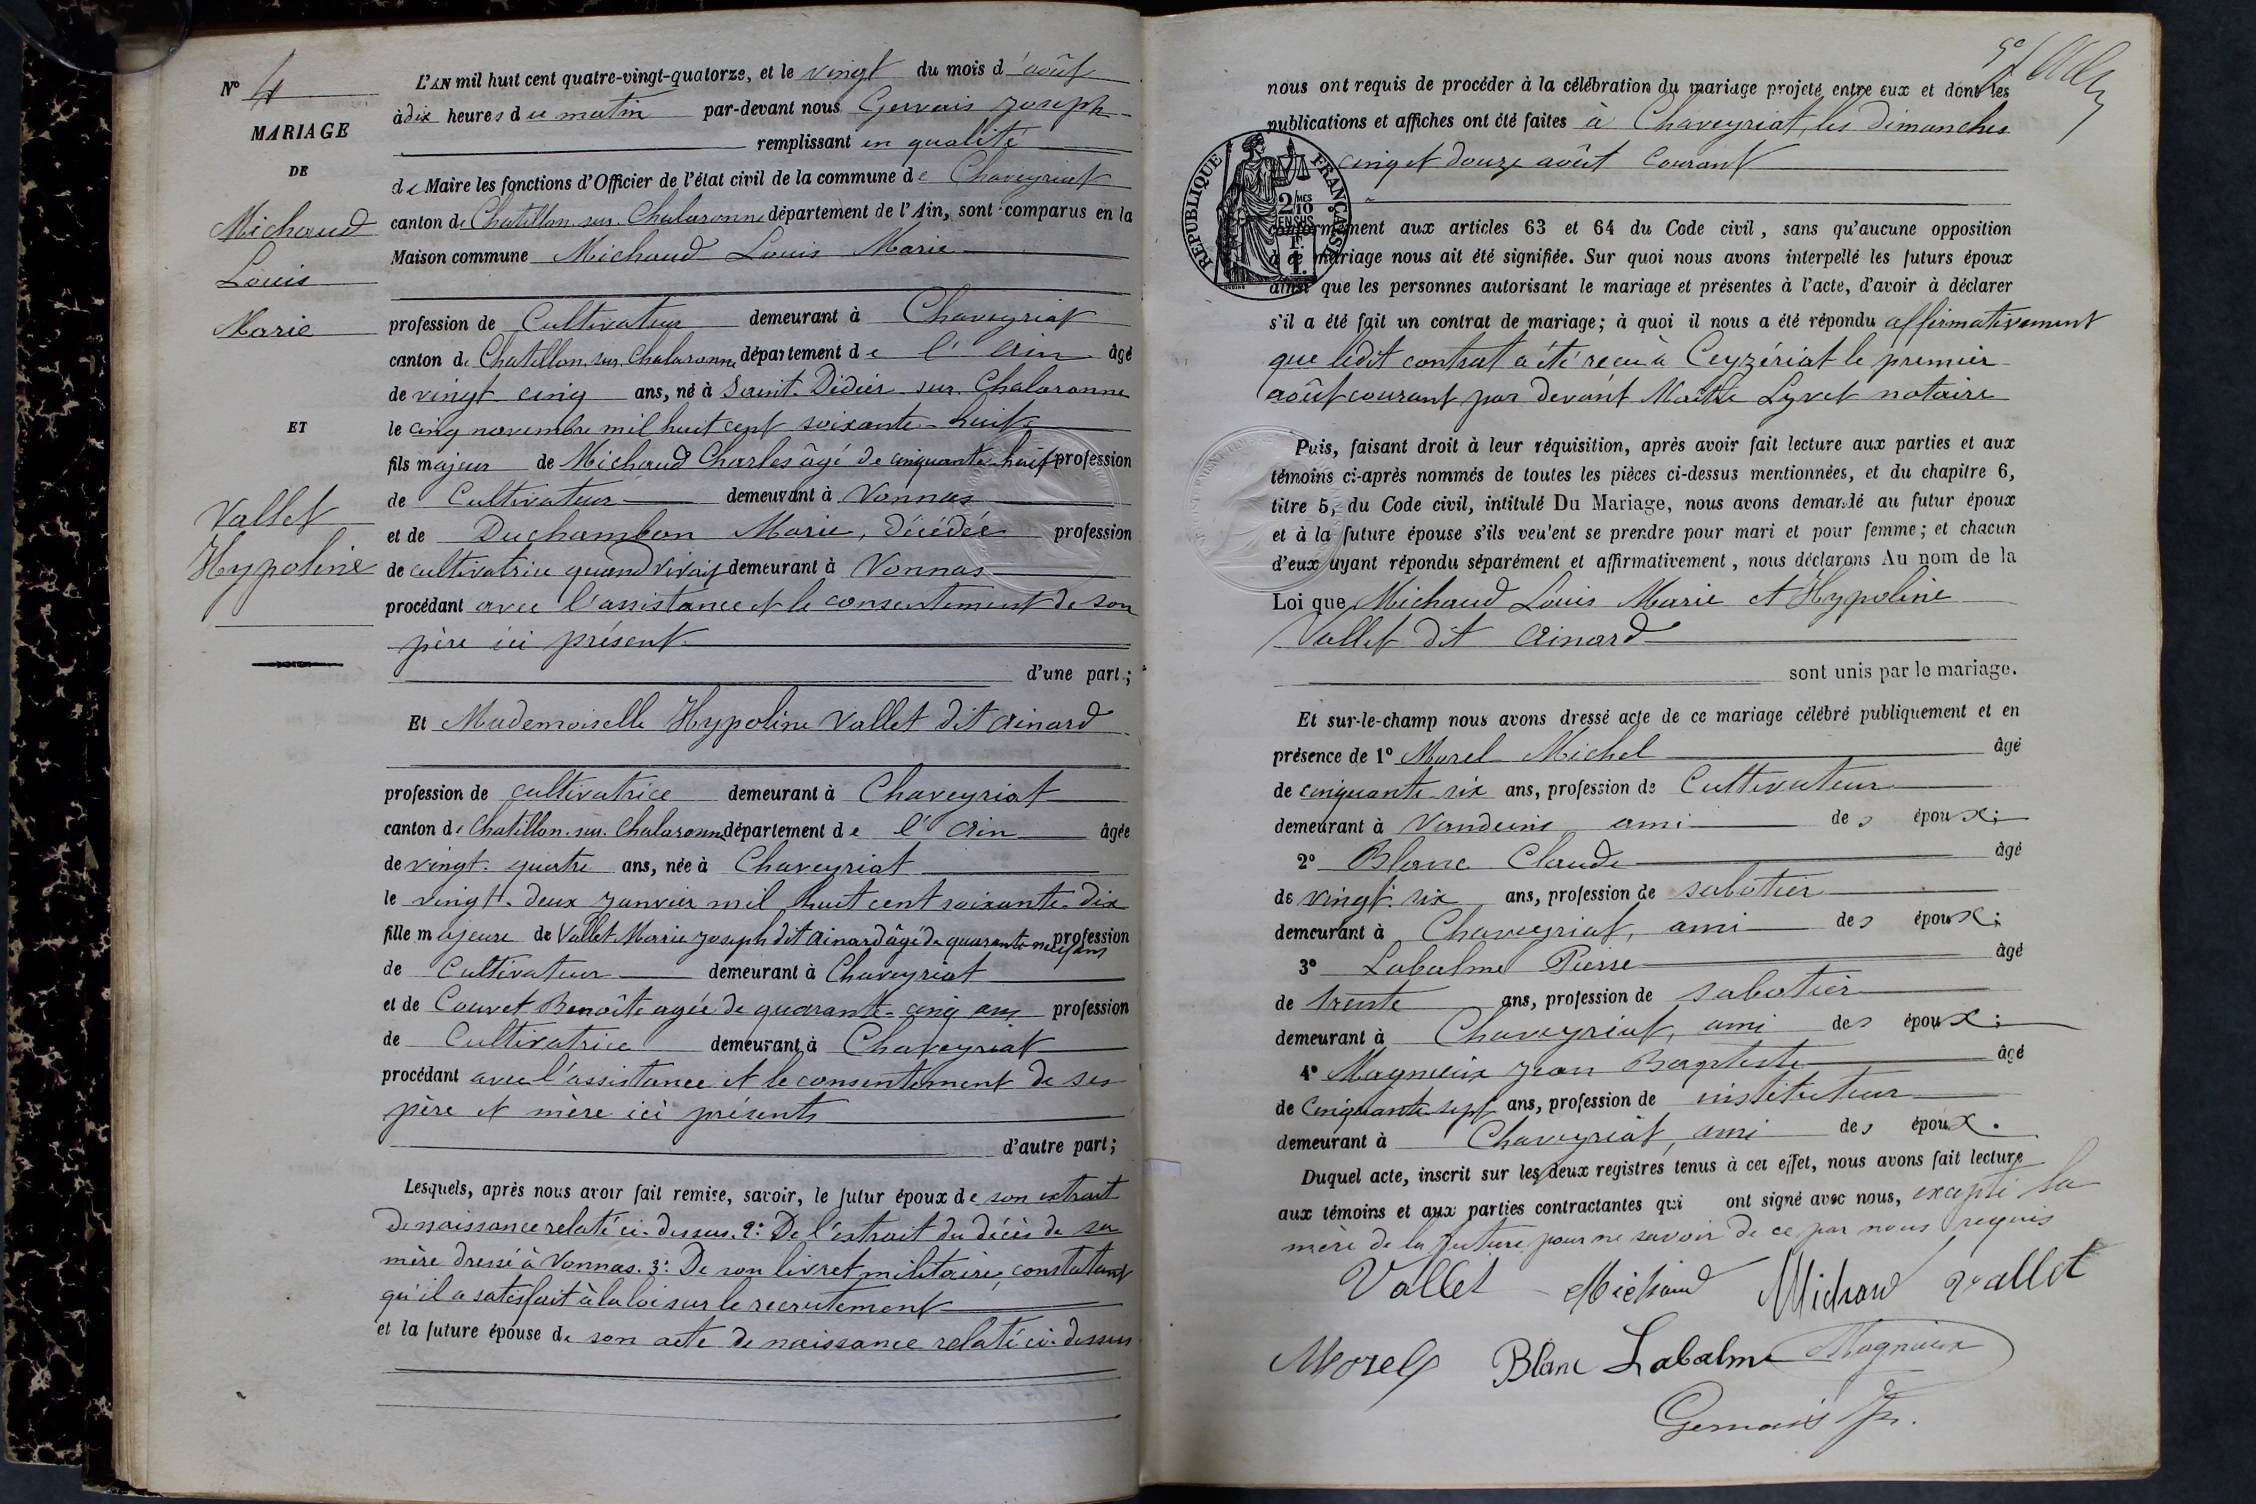 N° 4
MARIAGE
DE
Michaud
Louis
Marie
ET
Vallet
Hypoline
L'AN mil huit cent quatre-vingt-quatorze, et le vingt du mois d'août
à dix heures du matin par-devant nous Gervais Joseph
remplissant en qualité
de Maire les fonctions d'Officier de l'état civil de la commune de Chaveyriat
canton de Chatillon-sur-Chalaronne département de l'Ain, sont comparus en la
Maison commune Michaud Louis Marie
profession de Cultivateur demeurant à Chaveyriat
canton de Chatillon-sur-Chalaronne département de l'Ain âgé
de vingt-cinq ans, né à Saint-Didier-sur-Chalaronne
le cinq novembre mil huit cent soixante-huit
fils majeur de Michaud Charles âgé de cinquante-huit profession
de Cultivateur demeurant à Vonnas
et de Duchambon Marie, décédée profession
de cultivatrice quand vivait demeurant à Vonnas
procédant avec l'assistance et le consentement de son
père ici présent
d'une part ;
Et Mademoiselle Hypoline Vallet dit Ainard
profession de cultivatrice demeurant à Chaveyriat
canton de Chatillon-sur-Chalaronne département de l'Ain âgée
de vingt-quatre ans, née à Chaveyriat
le vingt-deux Janvier mil huit cent soixante-dix
fille majeure de Vallet Marie Joseph dit Ainard âgé de quarante-neuf ans profession
de Cultivateur demeurant à Chaveyriat
et de Couvet Benoîte agée de quarante-cinq ans profession
de Cultivatrice demeurant à Chaveyriat
procédant avec l'assistance et le consentement de ses
père et mère ici présents
d'autre part ;
Lesquels, après nous avoir fait remise, savoir, le futur époux de son extrait
de naissance relaté ci-dessus. 2° De l'extrait du décès de sa
mère dressé à Vonnas. 3° De son livret militaire, constatant
qu'il a satisfait à la loi sur le recrutement
et la future épouse de son acte de naissance relaté ci-dessus
nous ont requis de procéder à la célébration du mariage projeté entre eux et dont les
publications et affiches ont été faites à Chaveyriat, les dimanches
cinq et douze août courant
RÉPUBLIQUE FRANÇAISE
2/10 MES
EN SUS
1F.
conformément aux articles 63 et 64 du Code civil, sans qu'aucune opposition
à ce mariage nous ait été signifiée. Sur quoi nous avons interpellé les futurs époux
ainsi que les personnes autorisant le mariage et présentes à l'acte, d'avoir à déclarer
s'il a été fait un contrat de mariage ; à quoi il nous a été répondu affirmativement
que ledit contrat a été reçu à Ceyzériat le premier
août courant par devant Maître Lyvet notaire
Puis, faisant droit à leur réquisition, après avoir fait lecture aux parties et aux
témoins ci-après nommés de toutes les pièces ci-dessus mentionnées, et du chapitre 6,
titre 5, du Code civil, intitulé Du Mariage, nous avons demandé au futur époux
et à la future épouse s'ils veulent se prendre pour mari et pour femme ; et chacun
d'eux ayant répondu séparément et affirmativement, nous déclarons Au nom de la
Loi que Michaud Louis Marie et Hypoline
Vallet dit Ainard
sont unis par le mariage.
Et sur-le-champ nous avons dressé acte de ce mariage célébré publiquement et en
présence de 1° Morel Michel âgé
de cinquante-six ans, profession de Cultivateur
demeurant à Vandeins ami des époux ;
2° Blanc Claude âgé
de vingt-six ans, profession de sabotier
demeurant à Chaveyriat, ami des époux ;
3° Labalme Pierre âgé
de trente ans, profession de sabotier
demeurant à Chaveyriat, ami des époux ;
4° Magnieux Jean Baptiste âgé
de Cinquante-sept ans, profession de instituteur
demeurant à Chaveyriat, ami des époux.
Duquel acte, inscrit sur les deux registres tenus à cet effet, nous avons fait lecture
aux témoins et aux parties contractantes qui ont signé avec nous, excepté la
mère de la future pour ne savoir de ce par nous requis
Vallet Michaud Michaud Vallet
Morel Blanc Labalme Magnieux
Gervais Jh.